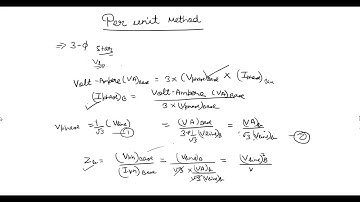 Per unit method
⇒ 3-ϕ Star
Volt-Ampere (VA)Base = 3 × (Vphase)Base ×
(Iphase)B = Volt-Ampere (VA)Base / 3 × (Vphase)Base
Vphase = 1/√3 (Vline) ① = (VA)B / 3 × 1/√3 (Vline)B = (VA)B / √3 (Vline)B ②
= (Vph)Base / (Iph)Base = (Vline)B / √3 × (VA)B / √3 (Vline)B = (Vline)²B / V